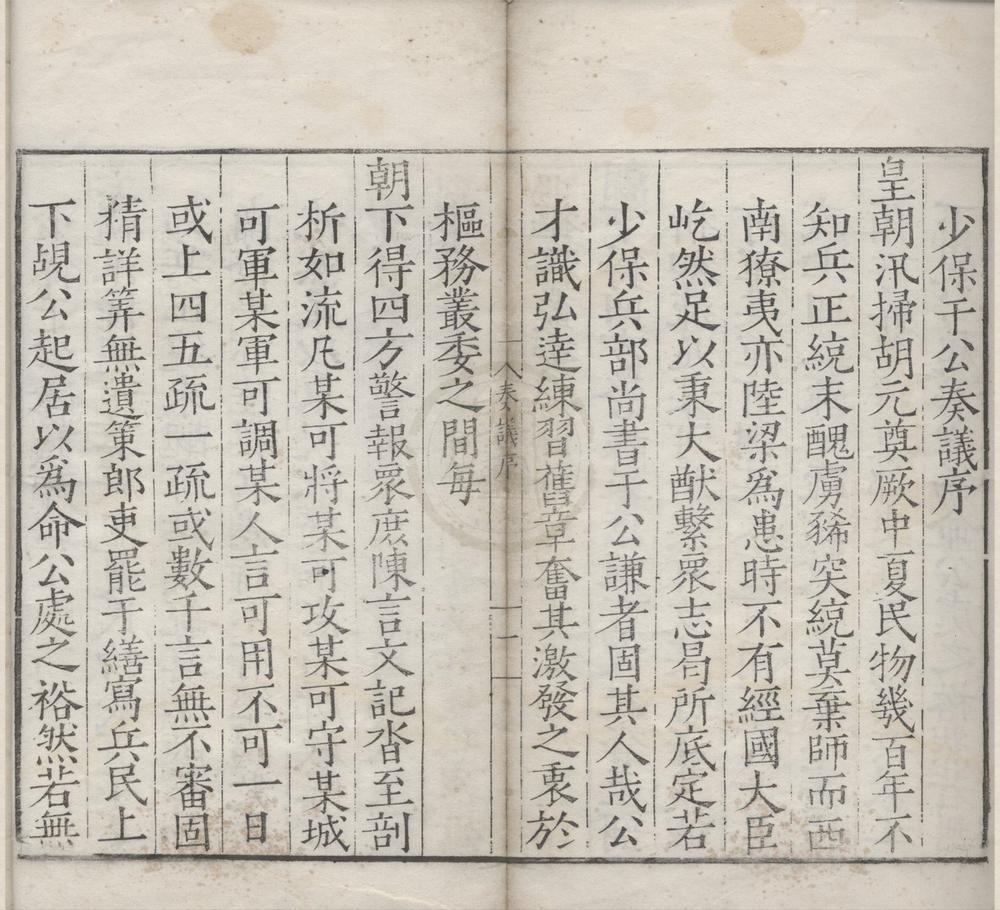 少保于公奏議序
皇朝汛掃胡元奠厥中夏民物幾百年不
知兵正統末醜虜豨突統莫棄師而西
南獠夷亦陸梁為患時不有經國大臣
屹然足以秉大猷繫眾志曷所底定若
少保兵部尚書于公謙者固其人哉公
才識弘達練習舊章奮其激發之衷於
奏議序
一
樞務叢委之間每
朝下得四方警報眾庶陳言文記沓至剖
析如流凡某可將某可攻某可守某城
可軍某軍可調某人言可用不可一日
或上四五疏一疏或數千言無不審固
精詳筭無遺策郎吏罷于繕寫兵民上
下覘公起居以為命公處之裕然若無